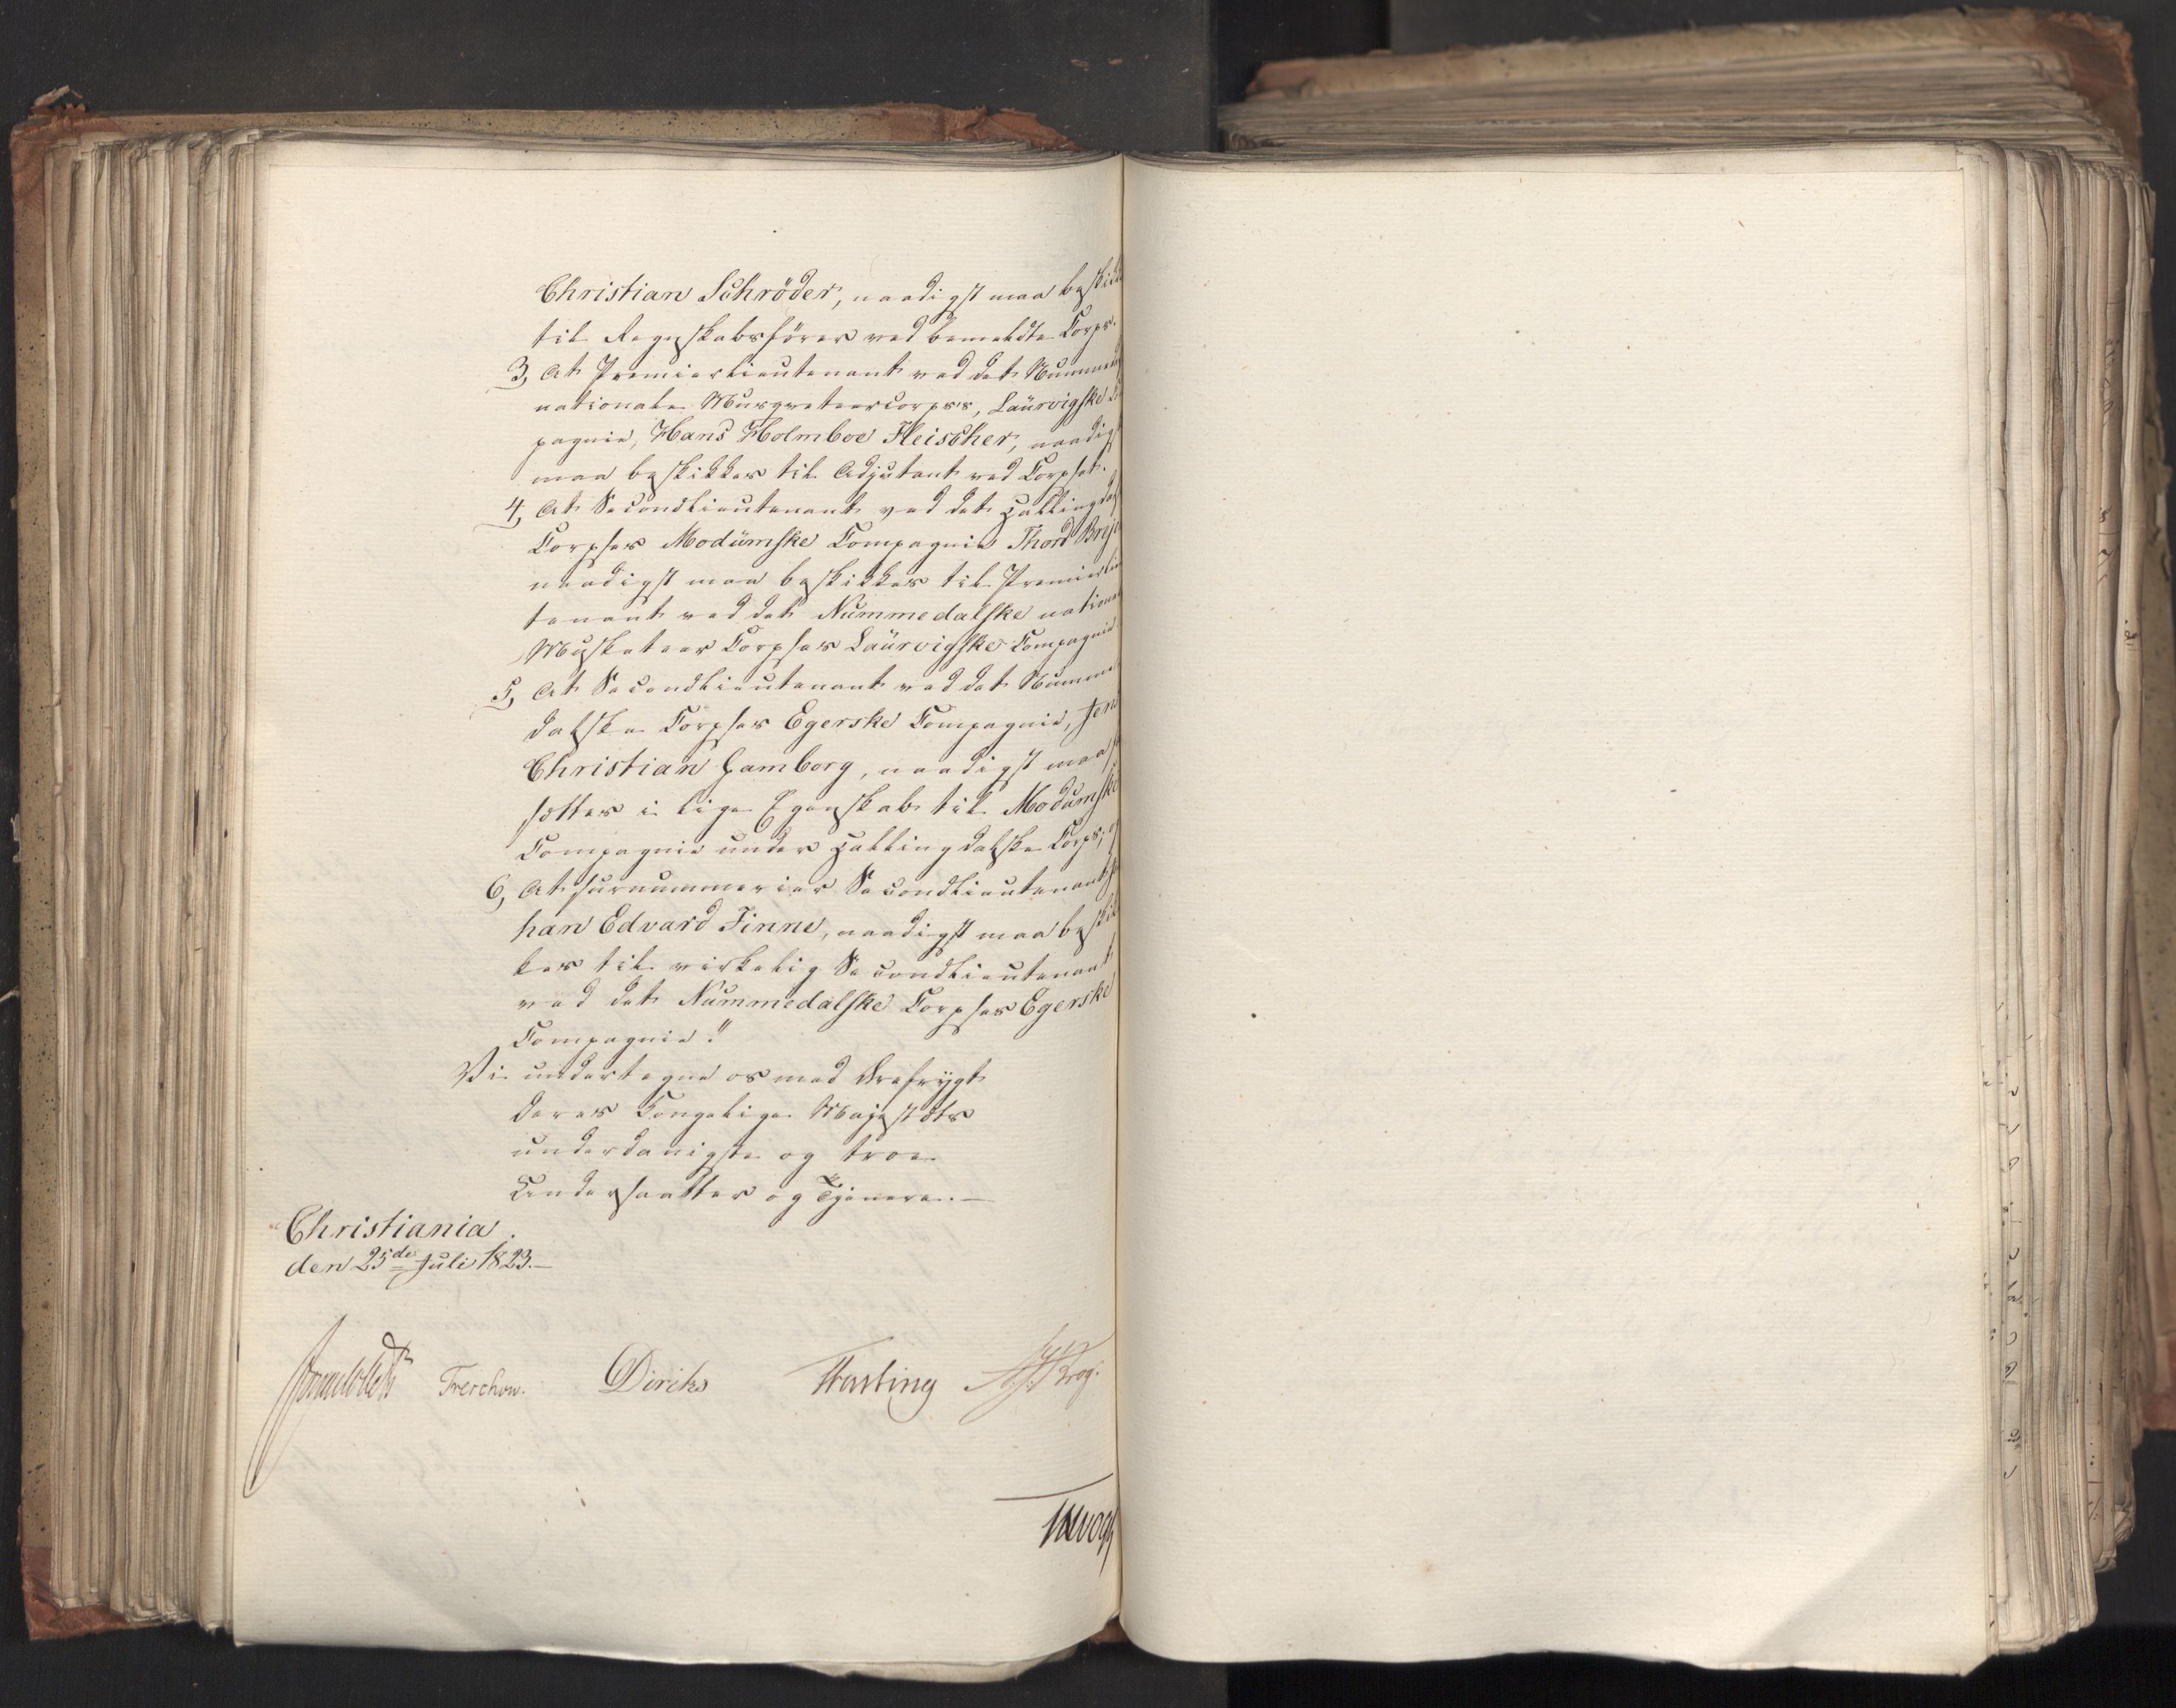 Christian Schröder, naadigst maa beskikk
til Regnskabsförer ved bemeldte Corps.
3, At Premierlieutenant ved det Nummed
nationale Musqveteercorps's, Laürvigske Co
pagnie, Hans Holmboe Fleischer, naadigst
maa beskikkes til Adjutant ved Corpset.
4, At Secondlieutenant ved det Hallingdalsk
Corpses Modümske Compagnie Thord
naadigst maa beskikkes til Premierlieu
tenant ved det Nummedalske national
Musketeer Corpses Laürvigske Compagnie
5, At Secondlieutenant ved det Numme
dalske Corpses Egerske Compagnie, Jens
Christian Gamborg, naadigst maa
sættes i lige Egenskab til Modumske
Compagnie under Hallingdalske Corps; og
6, At surnummerier Secondlieutenant Jo
han Edvard Finne, naadigst maa beskik
kes til virkelig Secondlieutenant
ved det Nummedalske Corpses Egerske
Compagnie."
Vi undertegne os med Ærefrygt
Deres Kongelige Majestæts
underdanigste og troe
Undersaatter og Tjenere.—
Christiania
den 25de Juli 1823.—
Sommerhielm Treschow. Diriks Fasting Krog.
Vogt